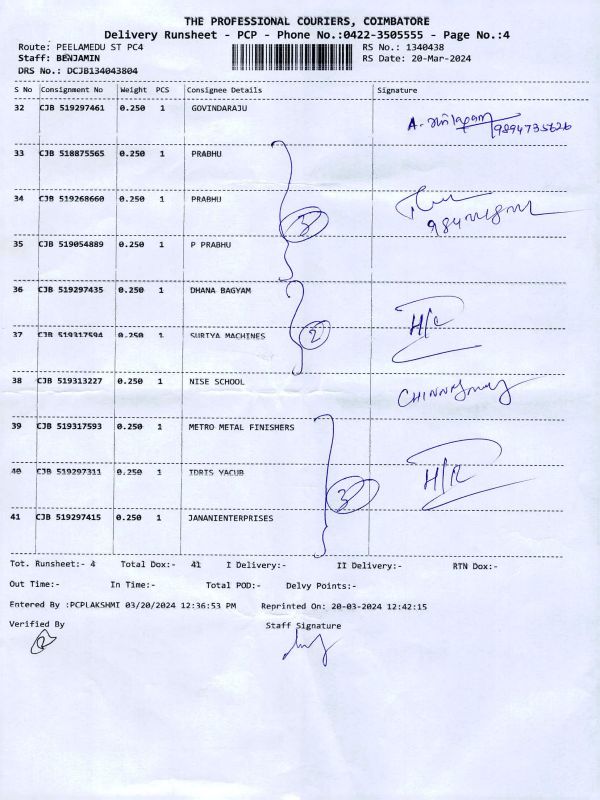 THE PROFESSIONAL COURIERS, COIMBATORE
Delivery Runsheet - PCP - Phone No.:0422-3505555 - Page No.:4
Route: PEELAMEDU ST PC4 RS No.: 1340438
Staff: BENJAMIN RS Date: 20-Mar-2024
DRS No.: DCJB134043804
S No Consignment No Weight PCS Consignee Details Signature
32 CJB 519297461 0.250 1 GOVINDARAJU
9894735626
33 CJB 518875565 0.250 1 PRABHU
34 CJB 519268660 0.250 1 PRABHU
3
35 CJB 519054889 0.250 1 P PRABHU
36 CJB 519297435 0.250 1 DHANA BAGYAM
H/C
37 CJB 519317594 0.250 1 SURIYA MACHINES 2
38 CJB 519313227 0.250 1 NISE SCHOOL
39 CJB 519317593 0.250 1 METRO METAL FINISHERS
40 CJB 519297311 0.250 1 IDRIS YACUB H/R
3
41 CJB 519297415 0.250 1 JANANIENTERPRISES
Tot. Runsheet:- 4 Total Dox:- 41 I Delivery:- II Delivery:- RTN Dox:-
Out Time:- In Time:- Total POD:- Delvy Points:-
Entered By :PCPLAKSHMI 03/20/2024 12:36:53 PM Reprinted On: 20-03-2024 12:42:15
Verified By Staff Signature